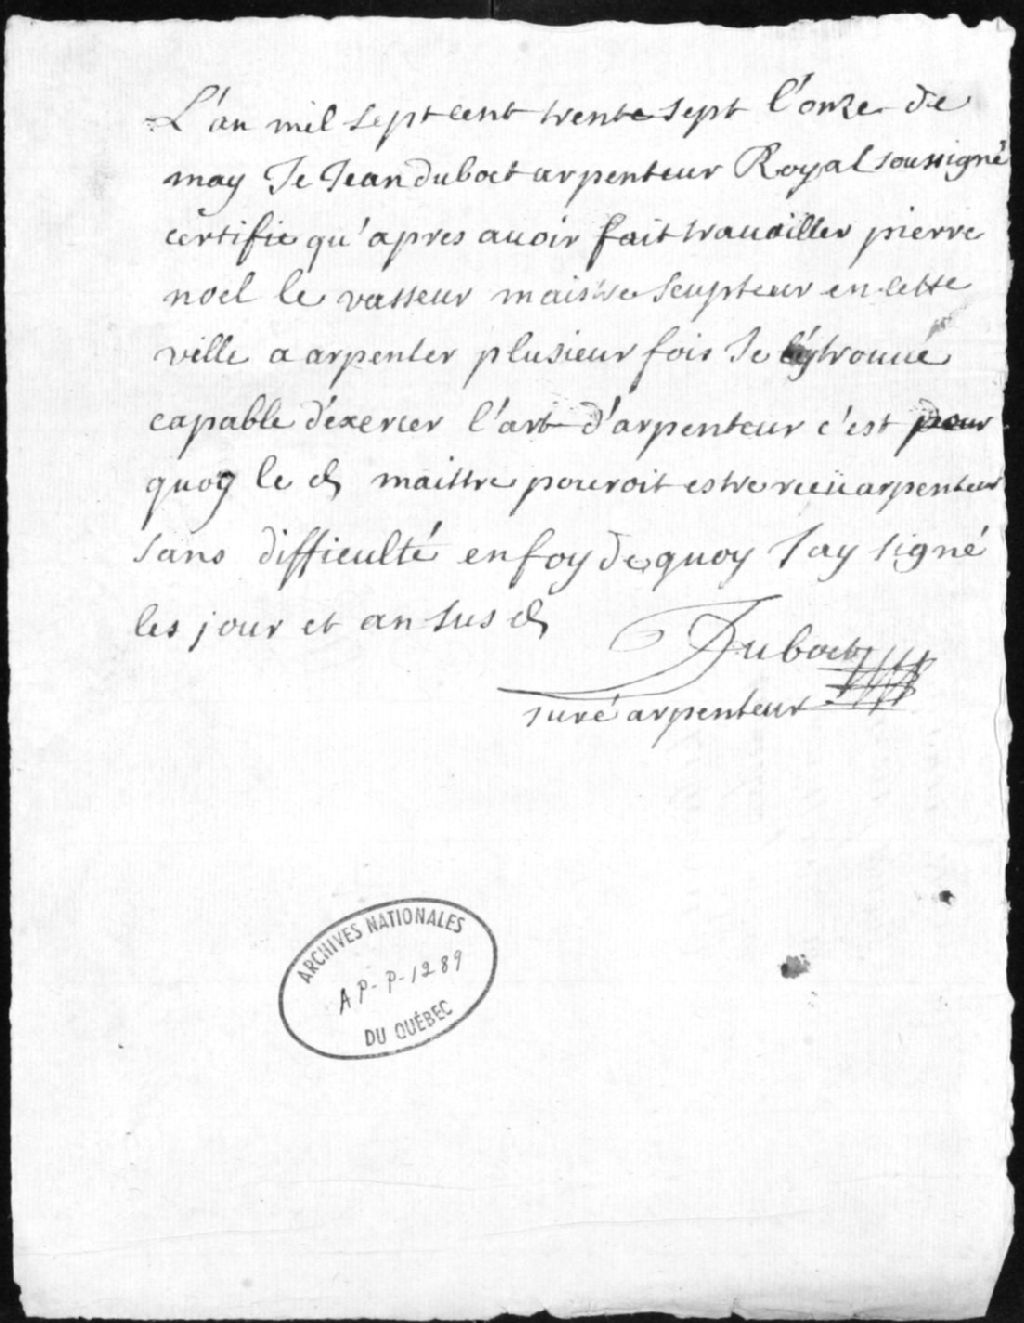 L'an mil sept cent trente sept l'onze de
may Je Jean duboct arpenteur Royal soussigné
certifie qu'apres auoir fait trauailler pierre
noel le vasseur maistre scupteur en cette
ville a arpenter plusieur fois Je l'ay trouué
capable d'exercer l'art d'arpenteur c'est pour
quoy le d maittre pouroit estre receu arpenteur
sans difficulté en foy de quoy J'ay signé
les jour et an sus d
Duboct
Juré arpenteur
ARCHIVES NATIONALES
A P-P-1289
DU QUÉBEC